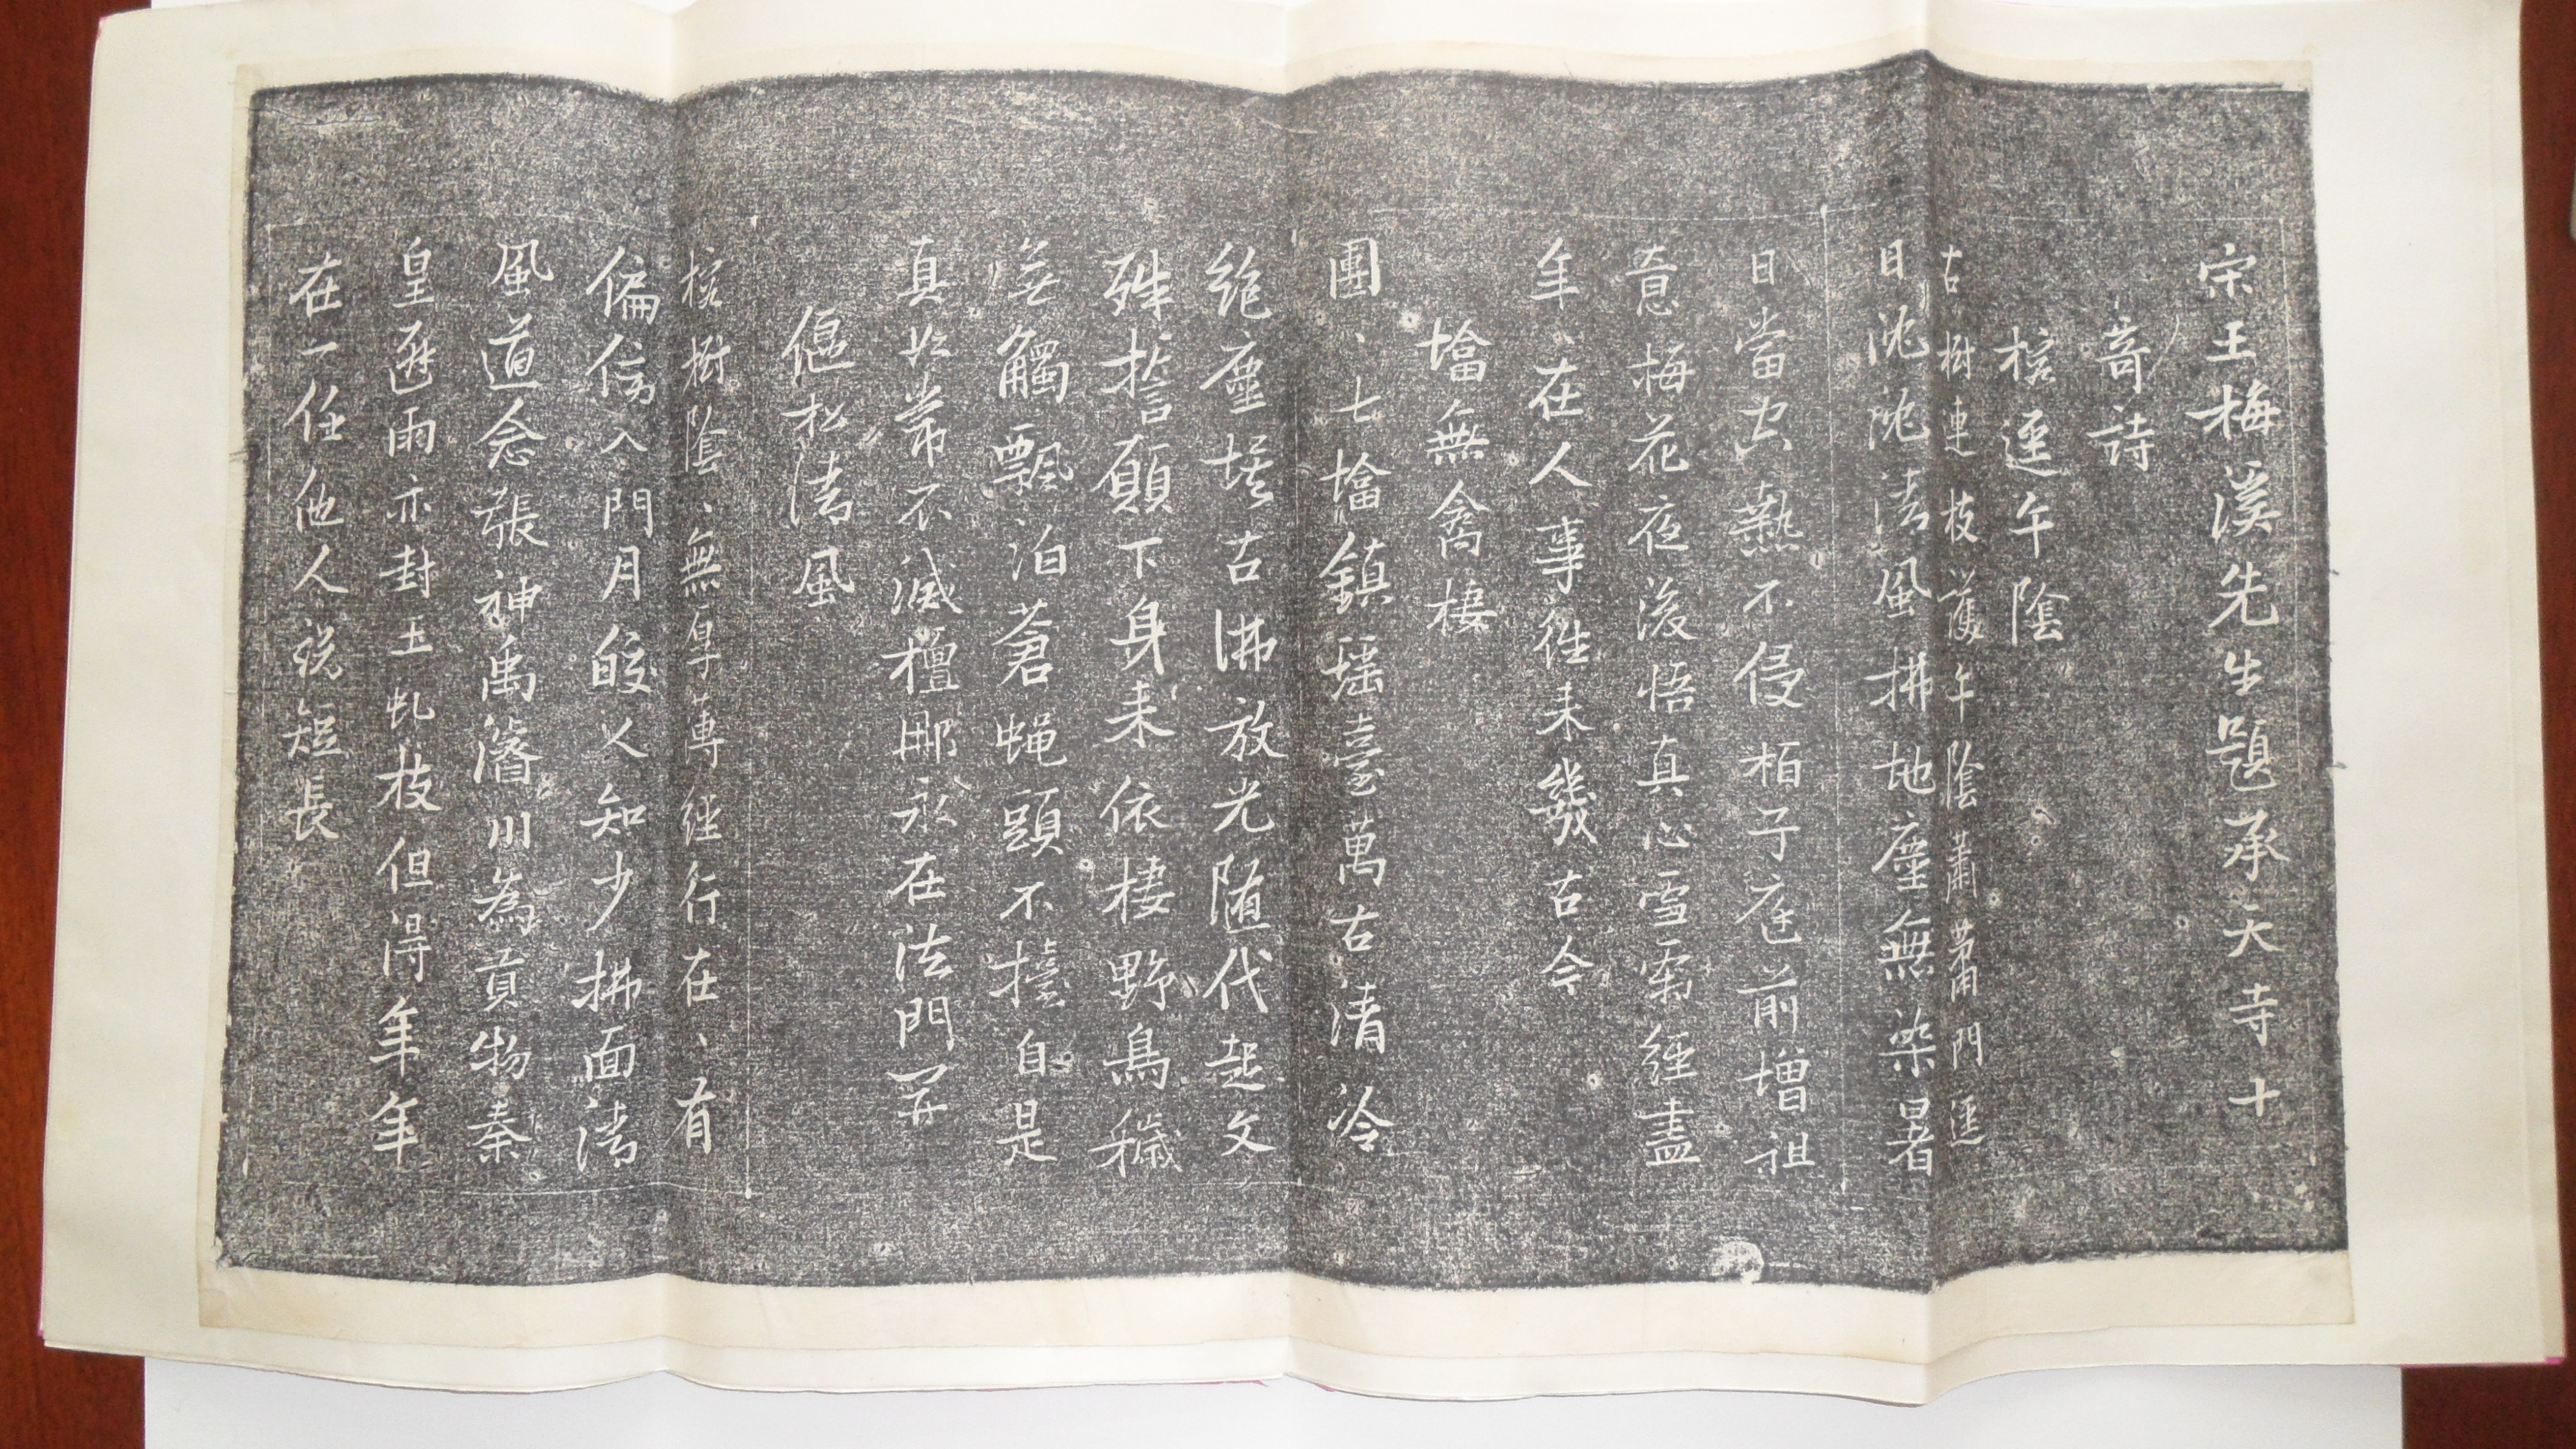 宋王梅溪先生題承天寺十
奇詩
榕逕午陰
古樹連枝護午陰蕭蕭門逕
日沈沈清風拂地塵無染暑
日當空熱不侵栢子庭前增祖
意梅花夜後悟真心雪霜經盡
年、在人事往来幾古今
㙮無禽棲
團、七㙮鎮瑶臺萬古清泠
絶塵埃古佛放光随代起文
殊誓願下身来依棲野鳥穢
無觸飄泊蒼蝇頭不擡自是
真如常不滅檀那永在法門開
偃松清風
榕樹陰、無厚薄經行在、有
偏傍入門月皎人知少拂面清
風道念張神禹濬川為貢物秦
皇歷雨亦封土虬枝但得年年
在一任他人説短長